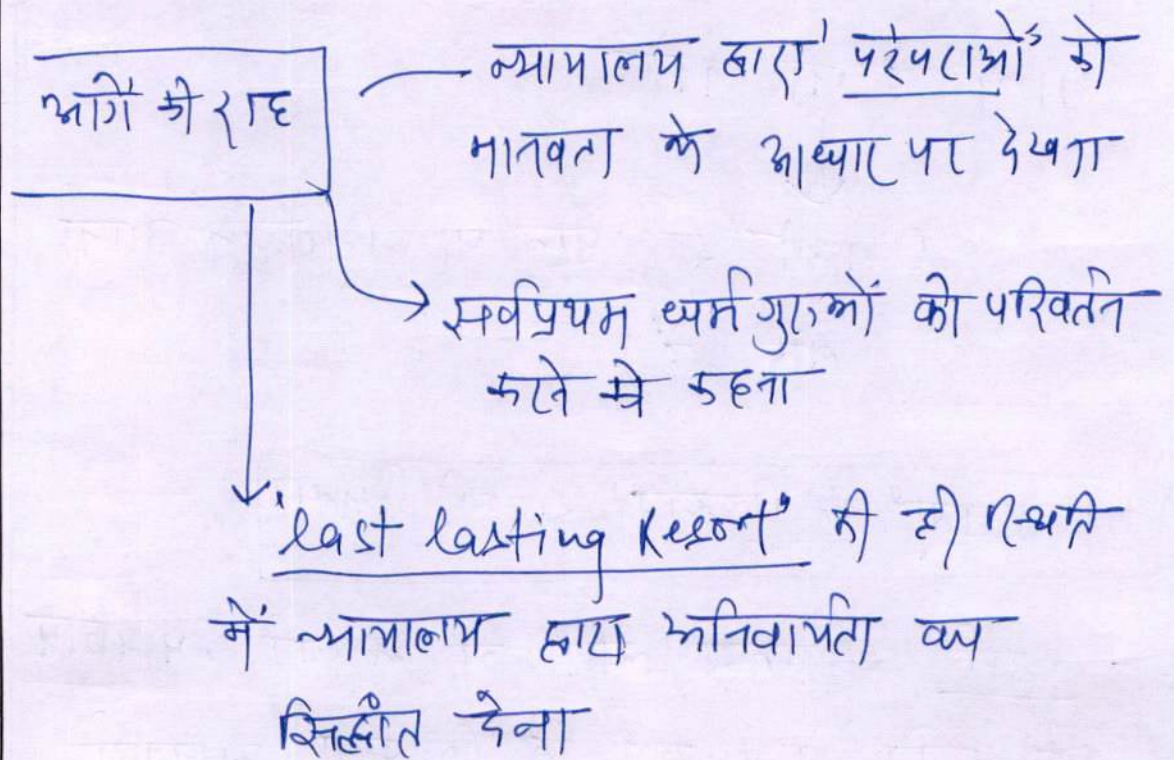 आगे की राह
न्यायालय द्वारा परंपराओं को
मानवता के आधार पर देखना
सर्वप्रथम धर्मगुरुओं को परिवर्तन
करने को कहना
'last lasting Resort' की ही स्थिति
में न्यायालय द्वारा अनिवार्यता का
सिद्धांत देना